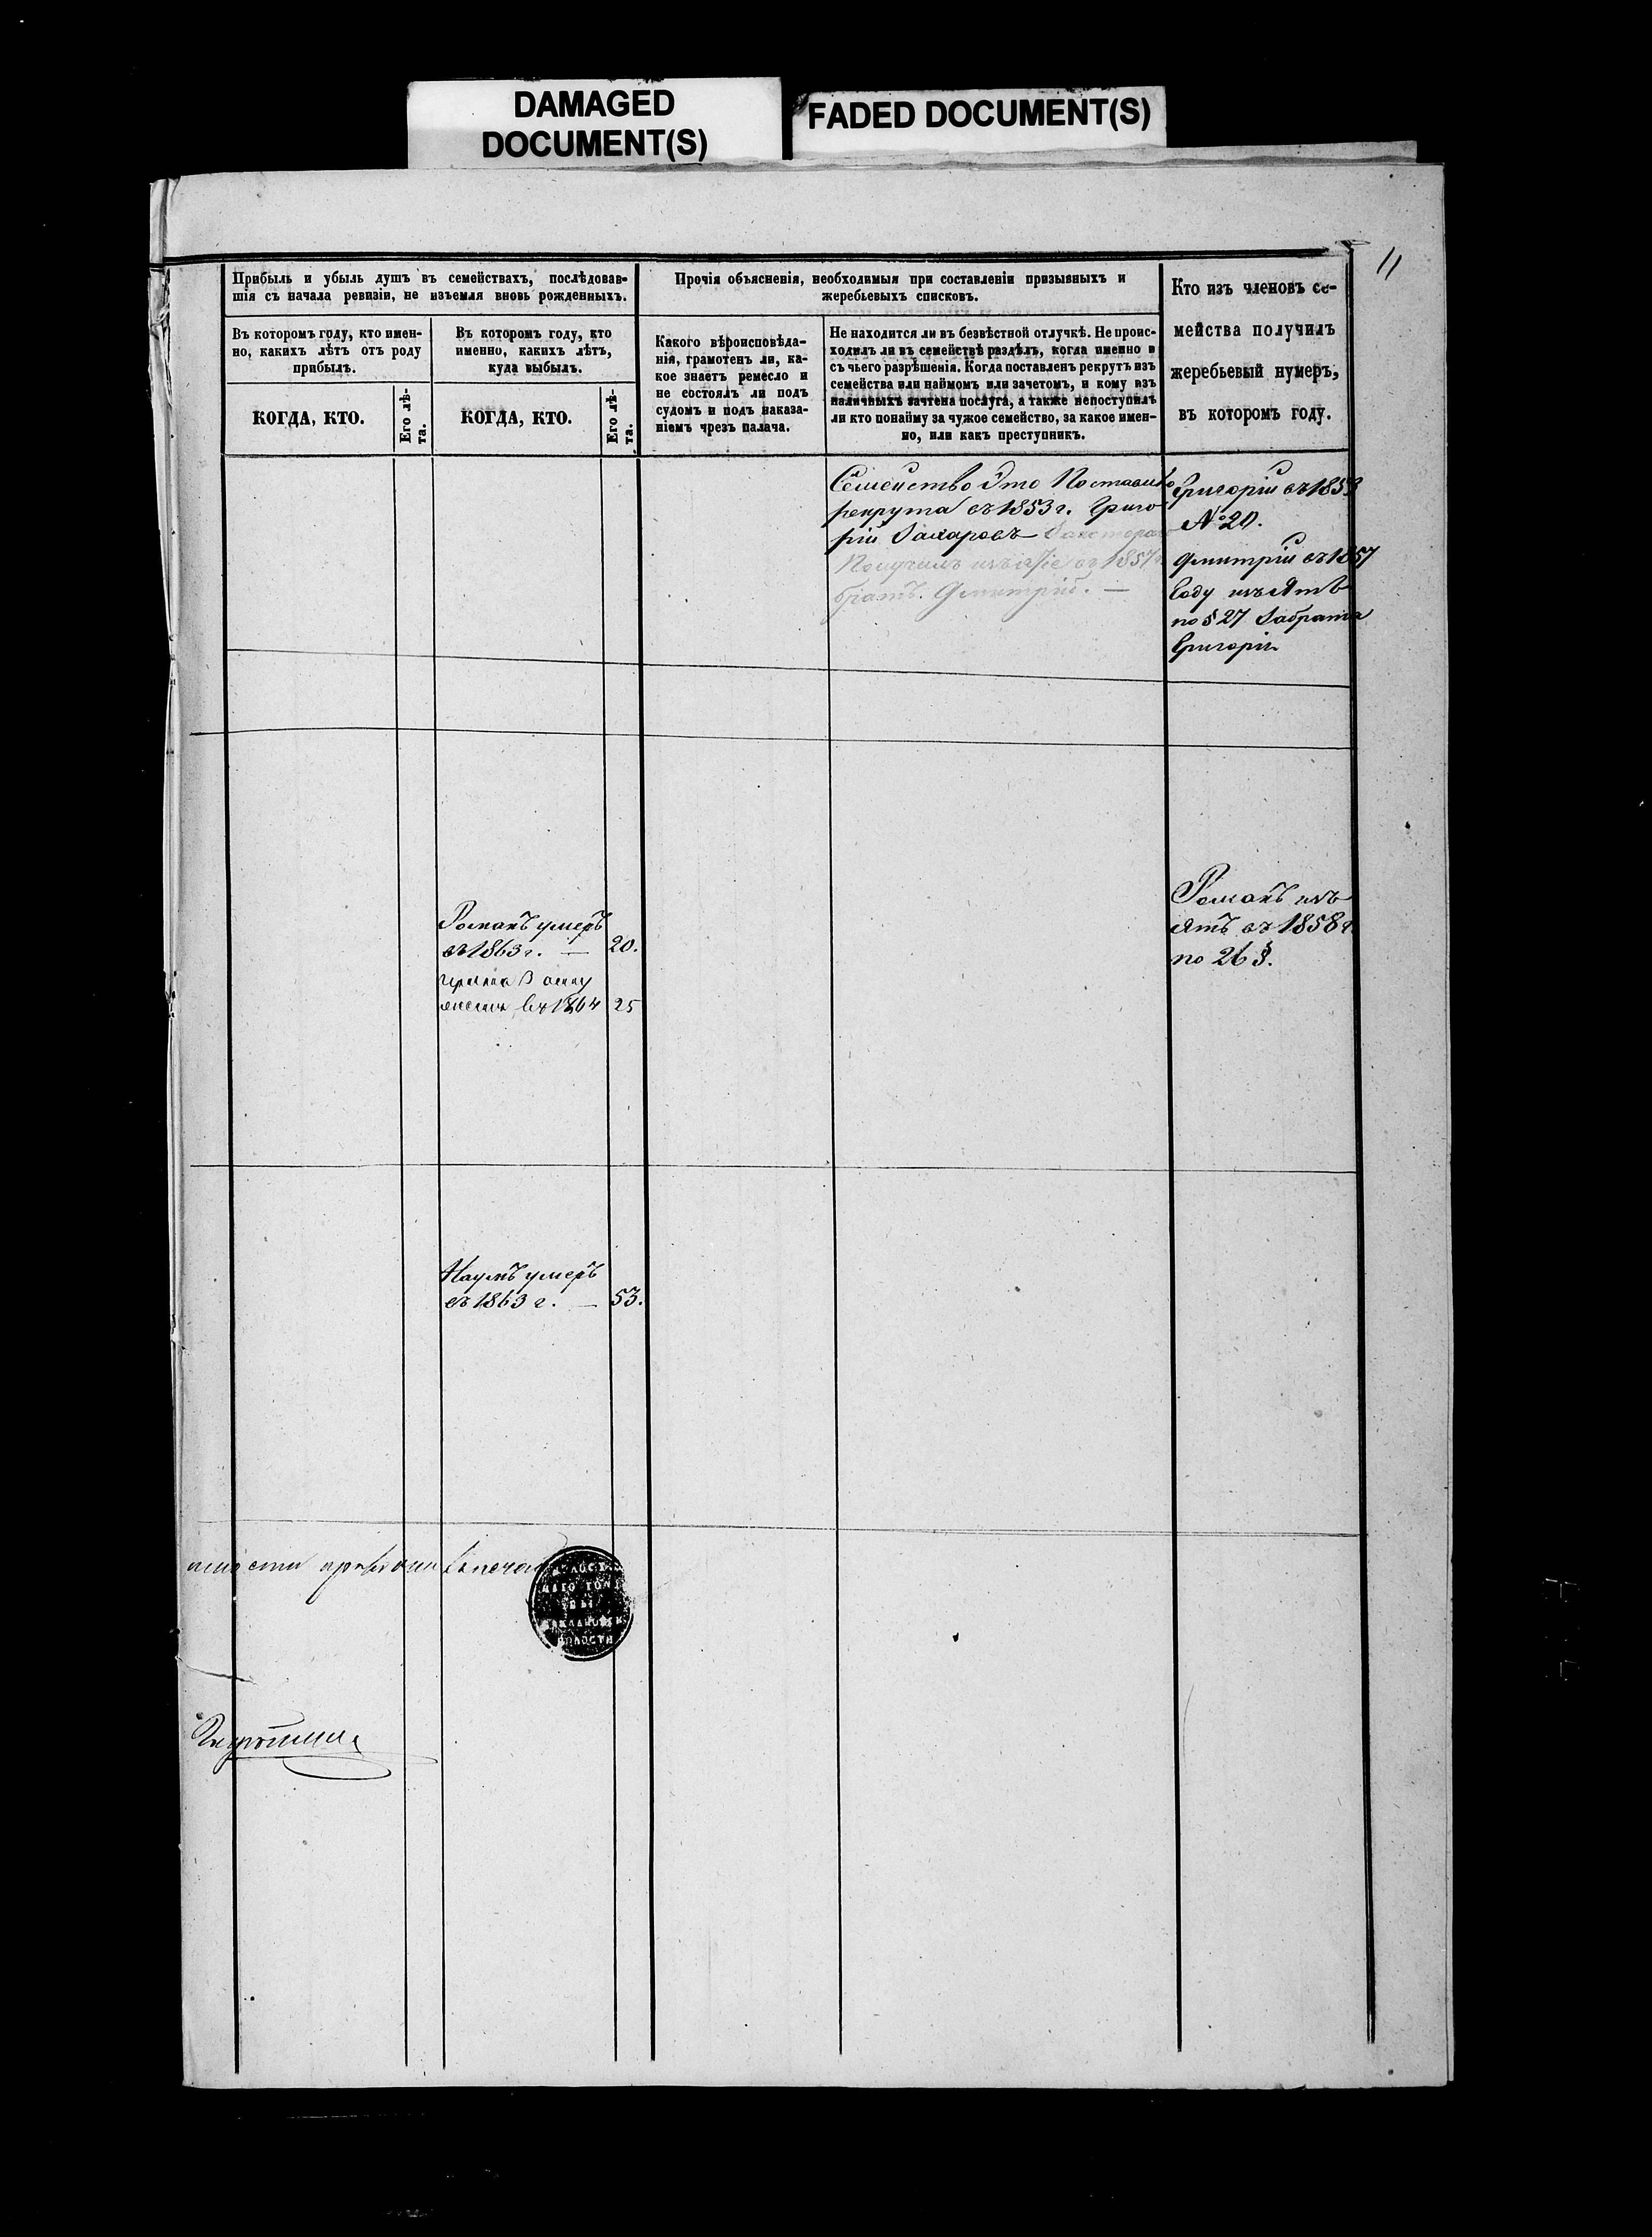 DAMAGED
DOCUMENT(S)
FADED DOCUMENT(S)
11
Прибыль и убыль душъ въ семействахъ, послѣдовав-
шія съ начала ревизіи, не изъемля вновь рожденныхъ.
Въ которомъ году, кто имен-
но, какихъ лѣтъ отъ роду
прибылъ.
КОГДА, КТО.
Его лѣ-
та.
Въ которомъ году, кто
именно, какихъ лѣтъ,
куда выбылъ.
КОГДА, КТО.
Его лѣ-
та.
Прочія объясненія, необходимыя при составленіи призывныхъ и
жеребьевыхъ списковъ.
Какого вѣроисповѣда-
нія, грамотенъ ли, ка-
кое знаетъ ремесло и
не состоялъ ли подъ
судомъ и подъ наказа-
ніемъ чрезъ палача.
Не находится ли въ безвѣстной отлучкѣ. Не проис-
ходилъ ли въ семействѣ раздѣлъ, когда именно и
съ чьего разрѣшенія. Когда поставленъ рекрутъ изъ
семейства или наймомъ или зачетомъ, и кому изъ
наличныхъ зачтена послуга, а также непоступилъ
ли кто понайму за чужое семейство, за какое имен-
но, или какъ преступникъ.
Кто изъ членовъ се-
мейства получилъ
жеребьевый нумеръ,
въ которомъ году.
Семейство Это Поставило
рекрута въ 1853 г. Григо
рій Захаровъ Закотораго
Получилъ изъятіе въ 1857 г.
братъ Дмитрій. —
Григорій въ 1853
№ 20.
Дмитрій въ 1857
Году изъятъ
по § 27 Забрата
Григорія
Романъ умеръ
въ 1863 г. — 20.
въ 1864 25
Романъ изъ
ятъ въ 1858 г.
по 26 §.
Наумъ умеръ
въ 1863 г. — 53.
ВОЛОСТ
НАГО ГОЛ
ВЫ
ВОЛОСТИ